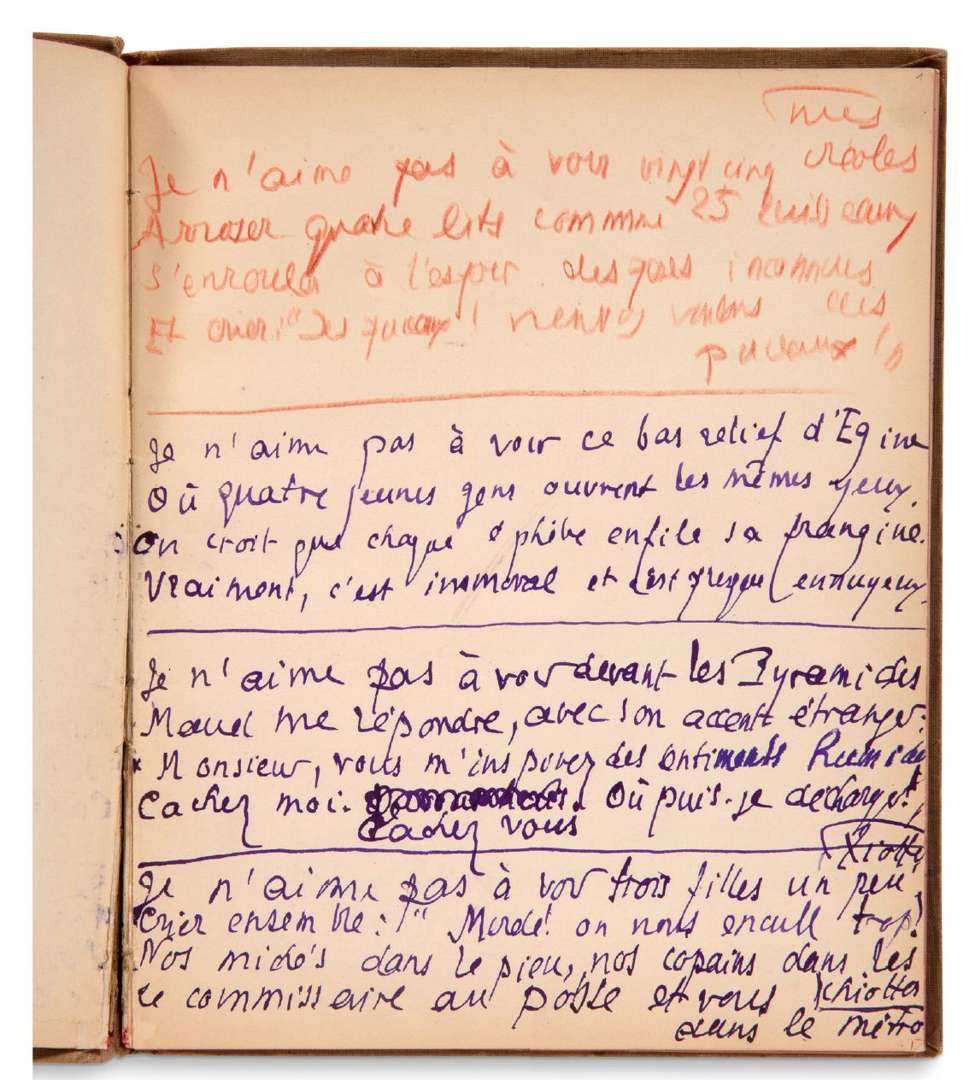 mes
Je n'aime pas à voir vingt cinq créoles
Arroser quatre lits comme 25 ruisseaux
S'enrouler à l'espoir des inconnues
Et crier : "Des ! des
Je n'aime pas à voir ce bas relief d'Egine
Où quatre jeunes gens ouvrent les mêmes yeux.
On croit que chaque éphèbe enfile sa frangine.
Vraiment, c'est immoral et c'est presque ennuyeux.
Je n'aime pas à voir devant les Pyramides
Maud me répondre, avec son accent étranger :
"Monsieur, vous m'inspirez des sentiments humides
Cachez moi. Où puis-je décharger."
Cachez vous
Je n'aime pas à voir trois filles un peu
Crier ensemble : "Merde! on nous encule trop!
Nos midés dans le pieu, nos copains dans les
Le commissaire au poste et vous chiottes
dans le métro